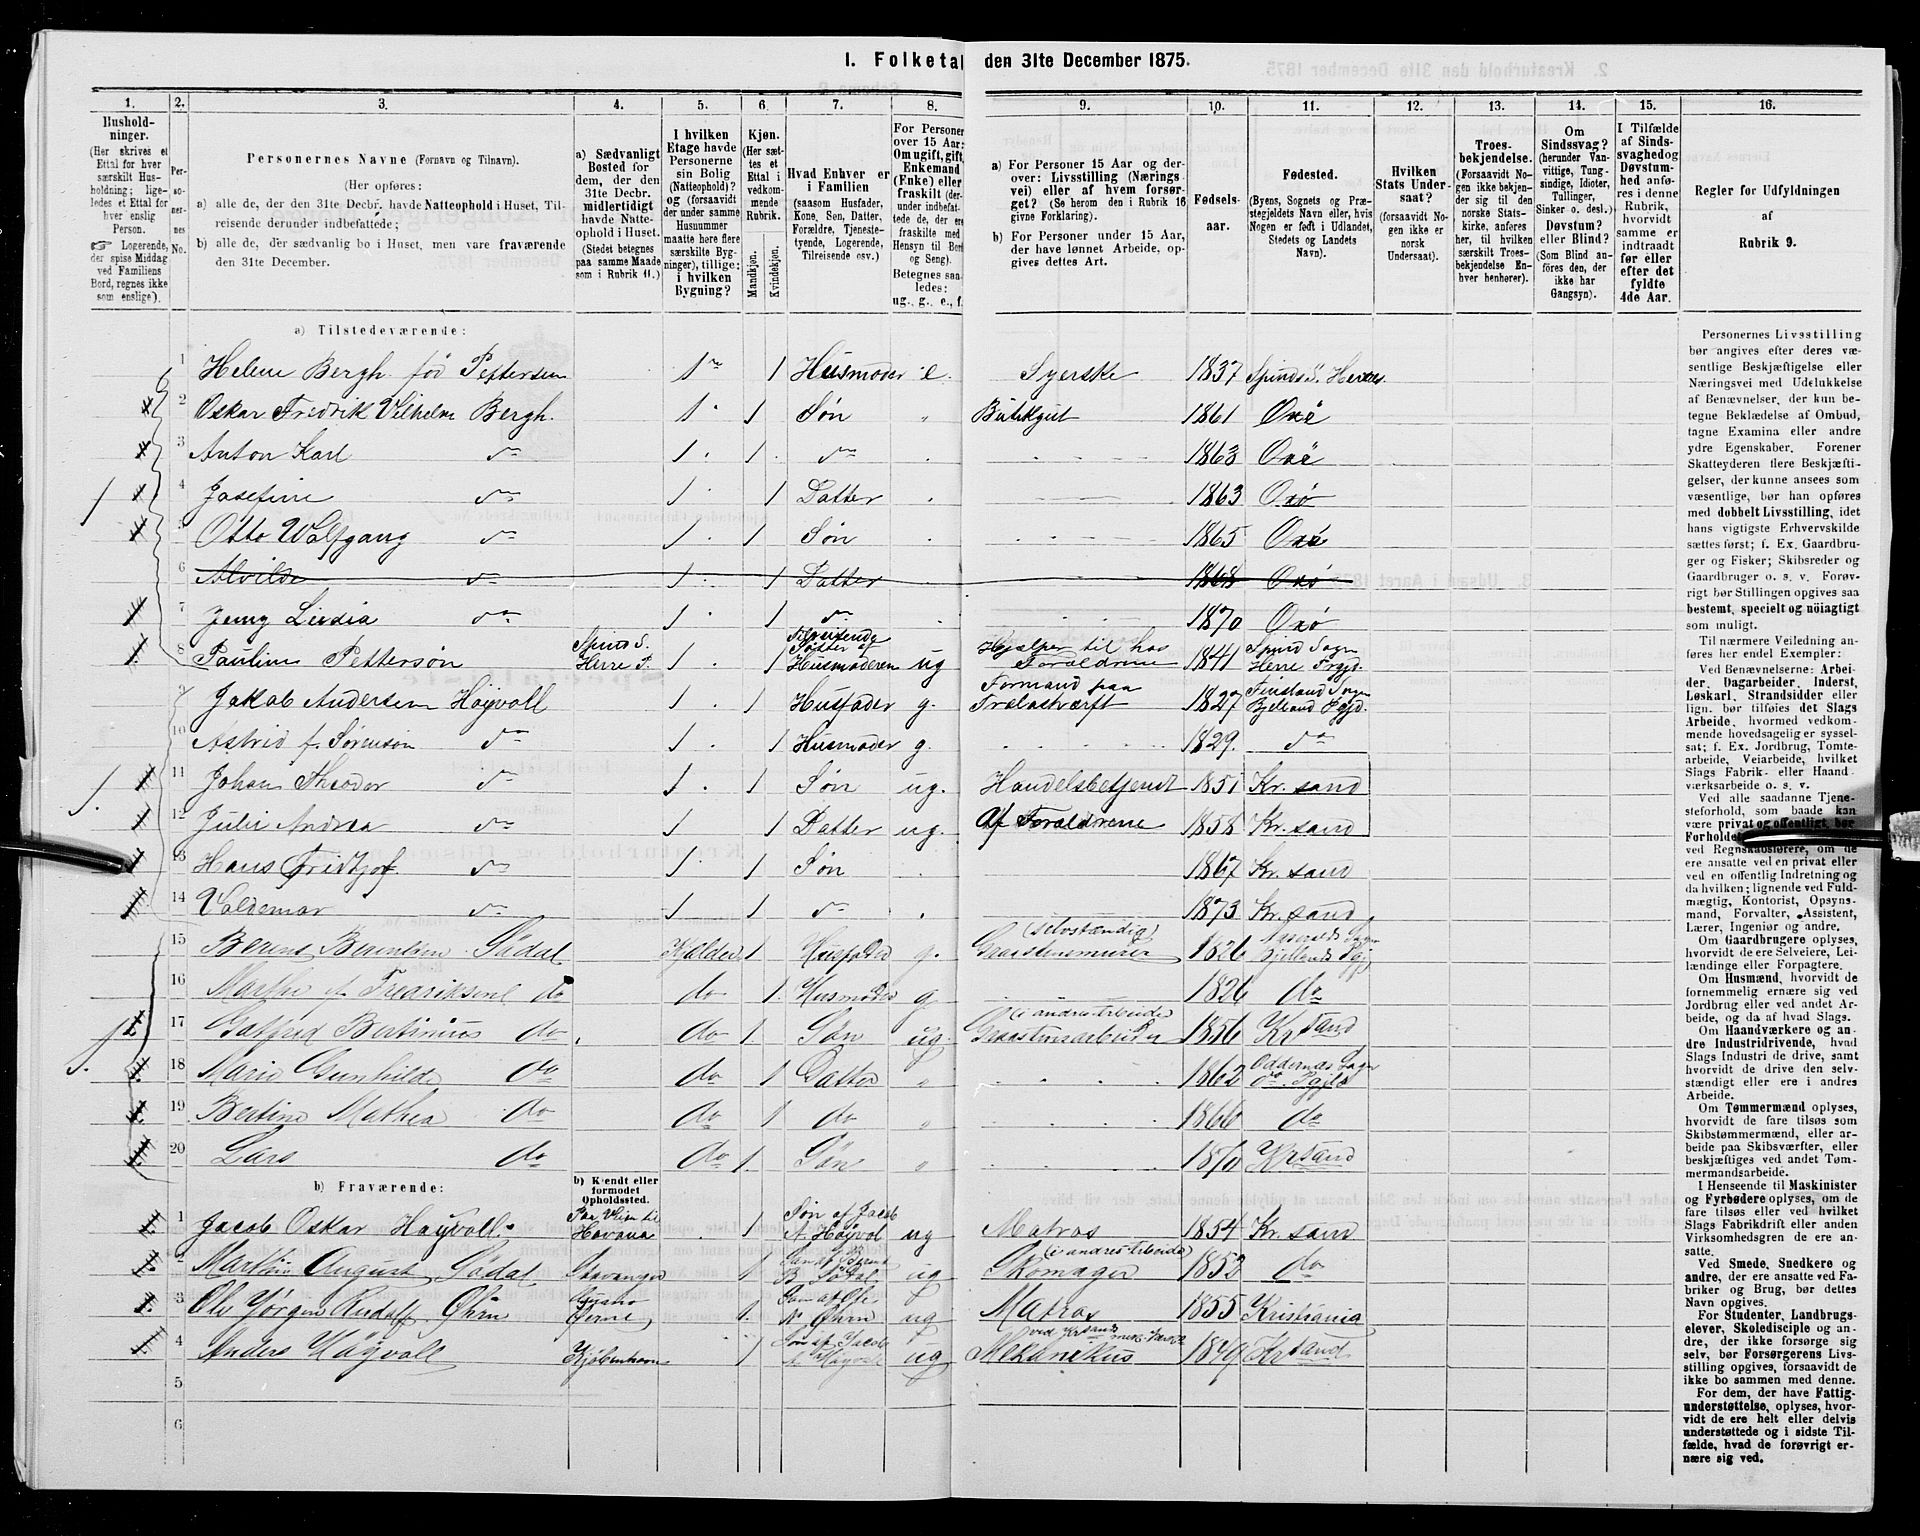 1. Folketal den 31te December 1875.
1. 2. 3. 4. 5. 6. 7. 8. 9. 10. 11. 12. 13. 14. 15. 16.
Husholdninger.
(Her skrives et
Ettal for hver
særskilt Husholdning; ligeledes
et Ettal for
hver enslig
Person.
☞ Logerende,
der spise Middag
ved Familiens
Bord, regnes ikke
som enslige).
Personernes No.
Personernes Navne (Fornavn og Tilnavn).
(Her opføres:
a) alle de, der den 31te Decbr. havde Natteophold i Huset, Tilreisende derunder indbefattede;
b) alle de, der sædvanlig bo i Huset, men vare fraværende
den 31te December.
a) Sædvanligt
Bosted for
dem, der den
31te Decbr.
midlertidigt
havde Natteophold
i Huset.
(Stedet betegnes
paa samme Maade
som i Rubrik 11.)
I hvilken
Etage havde
Personerne
sin Bolig
(Natteophold)?
og (forsaavidt
der under samme
Husnummer
maatte høre flere
særskilte Bygninger),
tillige:
i hvilken
Bygning?
Kjøn.
(Her sættes
et Ettal
i vedkommende
Rubrik.
Mandkjøn.
Kvindekjøn.
Hvad Enhver er
i Familien
(saasom Husfader,
Kone, Søn, Datter,
Forældre, Tjenestetyende,
Logerende,
Tilreisende osv.)
For Personer
over 15 Aar:
Om ugift, gift,
Enkemand
(Enke) eller
fraskilt
Betegnes saaledes:
ug., g., e., f.
a) For Personer 15 Aar og derover:
Livsstilling (Næringsvei)
eller af hvem forsørget?
(Se herom den i Rubrik 16
givne Forklaring).
b) For Personer under 15 Aar,
der have lønnet Arbeide, opgives
dettes Art.
Fødselsaar.
Fødested.
(Byens, Sognets og Præstegjeldets
Navn eller, hvis
Nogen er født i Udlandet,
Stedets og Landets
Navn).
Hvilken
Stats Undersaat?
(forsaavidt Nogen
ikke er
norsk
Undersaat).
Troesbekjendelse.
(Forsaavidt Nogen
ikke bekjender
sig til den
norske Statskirke,
anføres
her, til hvilken
særskilt Troesbekjendelse
Enhver
henhører).
Om
Sindssvag?
(herunder Vanvittige,
Tungsindige,
Idioter,
Tullinger,
Sinker o. desl.)
Døvstum?
eller Blind?
(Som Blind anføres
den, der
ikke har
Gangsyn).
I Tilfælde
af Sindssvaghed
og
Døvstumhed
anføres
i denne
Rubrik,
hvorvidt
samme er
indtraadt
før eller
efter det
fyldte
4de Aar.
Regler for Udfyldningen
af
Rubrik 9.
a) Tilstedeværende:
1 Helene Bergh fød Pettersen 1 1 Husmoder e. Syerske 1837 Spinds S. Herres
2 Oskar Fredrik Vilhelm Bergh. 1 1 Søn " Butikgut 1861
3 Anton Karl do 1 1 do 1863
4 Josefine do 1 1 Datter 1863
5 Otto Wolfgang do 1 1 Søn 1865
6 Alvilde do 1 1 Datter 1868
7 Jenny do 1 1 do 1870
8 Pauline Pettersøn Spinds S. Herre P. 1 1 Tilreisende Søster af Husmoderen ug Hjælper til hos Forældrene 1841 Spind Sogn Herre Prgjd.
9 Jakob Andersen Høyvoll 1 1 Husfader g. Formand paa Trælastværft 1827 Finsland Sogn Bjelland Pgjd.
10 Astrid f. Sørensøn do 1 1 Husmoder g. 1829. do
11 Johan Theodor do 1 1 Søn ug. Handelsbetjendt 1851 Kr. sand
12 Julie Andrea do 1 1 Datter ug. Af Forældrene 1858 Kr. sand
13 Hans Fridtjof do 1 1 Søn 1867 Kr. sand
14 Valdemar do 1 1 do 1873 Kr. sand
15 Berent Berentsen Sødal Kjelder 1 Husfader g. (selvstændig) Graastensmurer 1826 Sogn Bjellands Pgj
16 Marthe f. Fredriksen do do 1. Husmoder g 1826 do
17 Gotfred Bertinius do do 1. Søn ug. (i andres Arbeide) Graastensarbeider 1856 Kr sand
18 Marie Gunhilde do do 1 Datter " 1862 Oddernes Sogn do. Pgjld
19 Bertine Mathea do do 1 do " 1866 do
20 Lars do do 1. Søn " 1870 Krsand
b) Fraværende:
b) Kjendt eller
formodet
Opholdssted.
1 Jacob Oskar Høyvoll. Paa Veien til Havana 1 Søn af Jacob A Høyvol ug Matros 1854 Kr. sand
2 Marthin August Sødal. Stavanger 1 Søn af Berent B Sødal ug (i andres Arbeide) Skomager 1853 do
3 Ole Jörgen Rudolf Øhrn 1. Søn af Ole N Øhrn ug Matros 1855 Kristiania
4 Anders Höyvoll Kjøbenhavn 1 Søn af Jacob A Høyvoll ug Mekanikus 1849 Krsand
5
6
Personernes Livsstilling
bør angives efter deres væsentlige
Beskjæftigelse eller
Næringsvei med Udelukkelse
af Benævnelser, der kun betegne
Beklædelse af Ombud,
tagne Examina eller andre
ydre Egenskaber. Forener
Skatteyderen flere Beskjæftigelser,
der kunne ansees som
væsentlige, bør han opføres
med dobbelt Livsstilling, idet
hans vigtigste Erhvervskilde
sættes først; f. Ex. Gaardbruger
og Fisker; Skibsreder og
Gaardbruger o. s. v. Forøvrigt
bør Stillingen opgives saa
bestemt, specielt og nöiagtigt
som muligt.
Til nærmere Veiledning anføres
her endel Exempler:
Ved Benævnelserne: Arbeider,
Dagarbeider, Inderst,
Løskarl, Strandsidder eller
lign. bør tilføies det Slags
Arbeide, hvormed vedkommende
hovedsagelig er sysselsat;
f. Ex. Jordbrug, Tomtearbeide,
Veiarbeide, hvilket
Slags Fabrik- eller Haandværksarbeide
o. s. v.
Ved alle saadanne Tjenesteforhold,
som baade kan
være privat og offentligt, bør
Forholdet
ved Regnskabsførere, om de
ere ansatte ved en privat eller
ved en offentlig Indretning og
da hvilken; lignende ved Fuldmægtig,
Kontorist, Opsynsmand,
Forvalter, Assistent,
Lærer, Ingeniør og andre.
Om Gaardbrugere oplyses,
hvorvidt de ere Selveiere, Leilændinge
eller Forpagtere.
Om Husmænd, hvorvidt de
fornemmelig ernære sig ved
Jordbrug eller ved andet Arbeide,
og da af hvad Slags.
Om Haandværkere og andre
Industridrivende, hvad
Slags Industri de drive, samt
hvorvidt de drive den selvstændigt
eller ere i andres
Arbeide.
Om Tømmermænd oplyses,
hvorvidt de fare tilsøs som
Skibstømmermænd, eller arbeide
paa Skibsværfter, eller
beskjæftiges ved andet Tømmermandsarbeide.
I Henseende til Maskinister
og Fyrbødere oplyses, om de
fare tilsøs eller ved hvilket
Slags Fabrikdrift eller anden
Virksomhedsgren de ere ansatte.
Ved Smede, Snedkere og
andre, der ere ansatte ved Fabriker
og Brug, bør dettes
Navn opgives.
For Studenter, Landbrugselever,
Skoledisciple og andre,
der ikke forsørge sig
selv, bør Forsørgerens Livsstilling
opgives, forsaavidt de
ikke bo sammen med denne.
For dem, der have Fattigunderstøttelse,
oplyses, hvorvidt
de ere helt eller delvis
understøttede og i sidste Tilfælde,
hvad de forøvrigt ernære
sig ved.